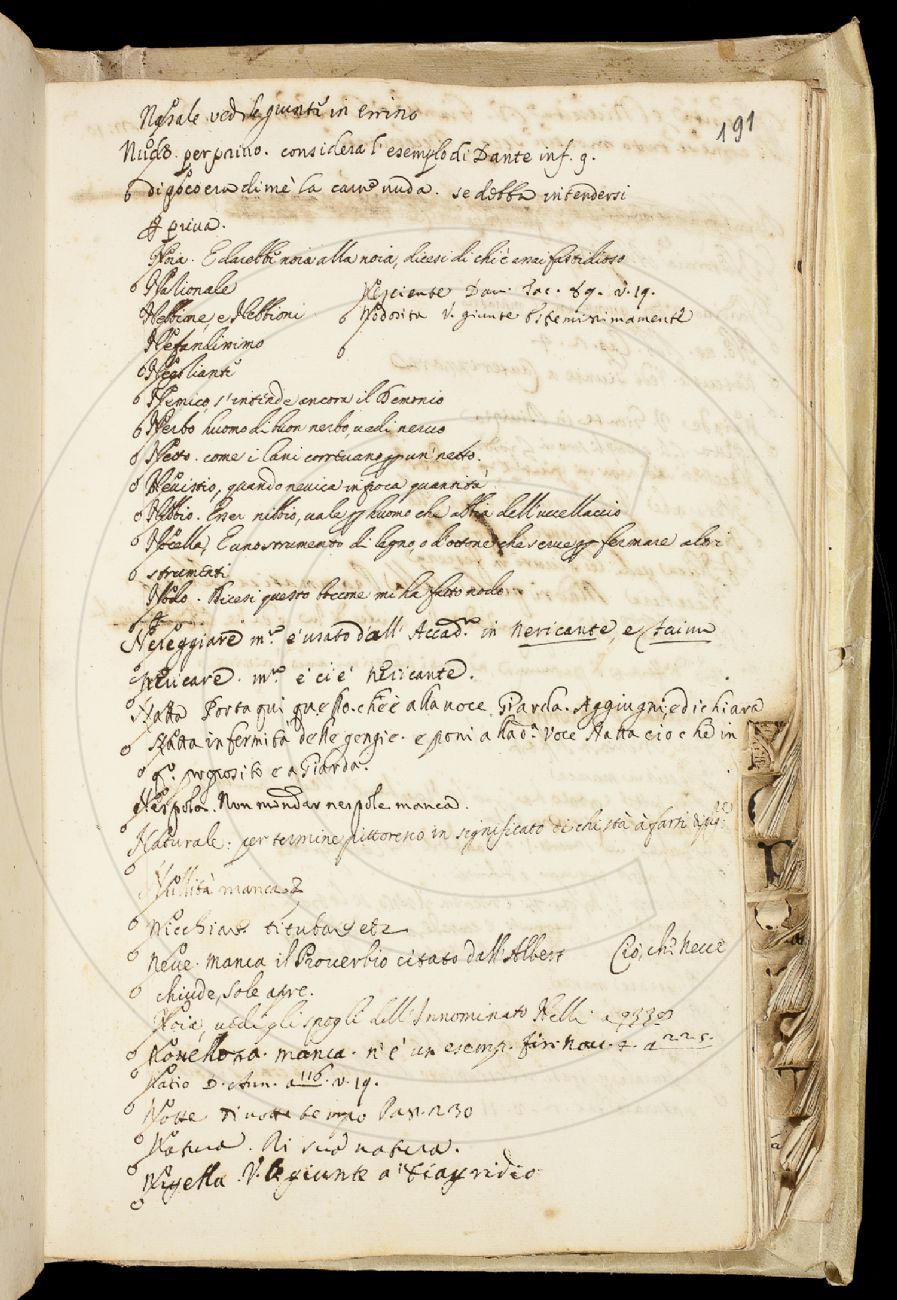 191
Nasale vedi le giunte in errino
Nudo. per privo. considera l'esempio di Dante inf. 9.
di poco era di me la carne nuda. se debba intendersi
p priva.
Noia. E darebbe noia alla noia, dicesi di chi è assai fastidioso
Nationale
Nesciente Dav. Tac. 89. v. 19.
Nebbione, e Nebbioni
Nodosità V. giunte
Nefandissimo
Negliante
Nemico, s'intende ancora il Demonio
Nerbo huomo di buon nerbo, vedi nervo
Netto. come i cani correvano p un netto.
Nevistio, quando nevica in poca quantità
Nibbio. Esser nibbio, vale p huomo che abbia dell'uccellaccio
Nocella, E uno strumento di legno, o d'ottone che serve p fermare altri
strumenti
Nodo. Dicesi questo boccone mi ha fatto nodo
Nereggiare m.ª e' usato dall' Accad.ª in nericante, e
nericare. m.ª e ci è nericante.
Natta Porta qui quello. che è alla voce Giarda. Aggiugni, e dichiara
Natta infermità delle gengie. e poni alla d.ª voce Natta ciò che in
q.º proposito e a Giarda.
Nespola. Non mondar nespole manca.
Naturale: per termine pittoresco in significato di chi stà à farsi
Nullità manca
Nicchiare titubare etc
Neve. manca il Proverbio citato dall'Albert Ciò, che neve
chiude, sole apre.
Noia, vedi gli spogli dell'Innominato Nelli a 933
Novellozza. manca. n'è un esemp. fir. nov. a 225.
Natio D. Ann. a 116. v. 19.
Notte di notte tempo Pass. 230
Natura. Di sua natura.
Nigella. V. le giunte a